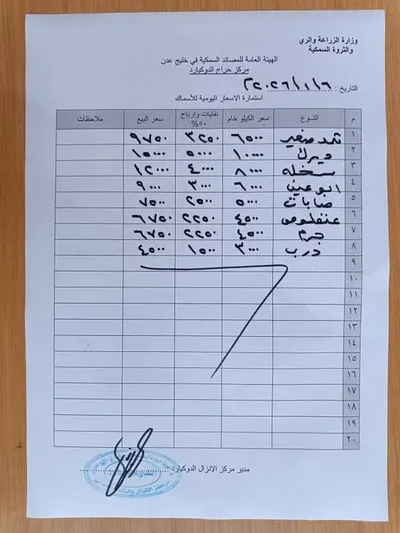 وزارة الزراعة والري
والثروة السمكية
الهيئة العامة للمصائد السمكية في خليج عدن
مركز حراج الدوكيارد
التاريخ : ٢٠٢٦/١/٦
استمارة الاسعار اليومية للأسماك
م النوع سعر الكيلو خام نفايات وارباح ٥٠% سعر البيع ملاحظات
١ ثمد صغير ٦٥٠٠ ٣٢٥٠ ٩٧٥٠
٢ ديرك ١٠٠٠٠ ٥٠٠٠ ١٥٠٠٠
٣ سخله ٨٠٠٠ ٤٠٠٠ ١٢٠٠٠
٤ ابو عين ٦٠٠٠ ٣٠٠٠ ٩٠٠٠
٥ ٥٠٠٠ ٢٥٠٠ ٧٥٠٠
٦ ٤٥٠٠ ٢٢٥٠ ٦٧٥٠
٧ جرم ٤٥٠٠ ٢٢٥٠ ٦٧٥٠
٨ درب ٣٠٠٠ ١٥٠٠ ٤٥٠٠
٩
١٠
١١
١٢
١٣
١٤
١٥
١٦
١٧
١٨
١٩
٢٠
مدير مركز الانزال الدوكيارد